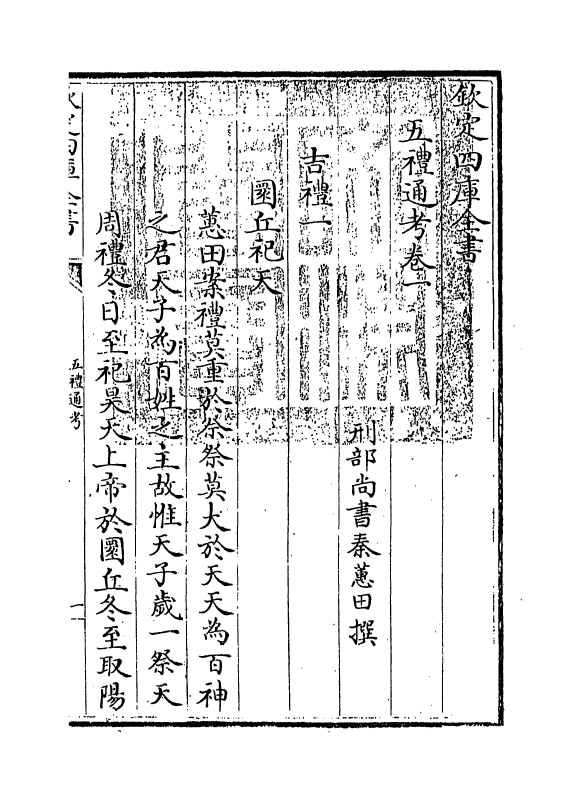 欽定四庫全書
五禮通考卷一
刑部尚書秦蕙田撰
吉禮一
圜丘祀天
蕙田案禮莫重於祭祭莫大於天天為百神
之君天子為百姓之主故惟天子歲一祭天
周禮冬日至祀昊天上帝於圜丘冬至取陽
欽定四庫全書
五禮通考
一